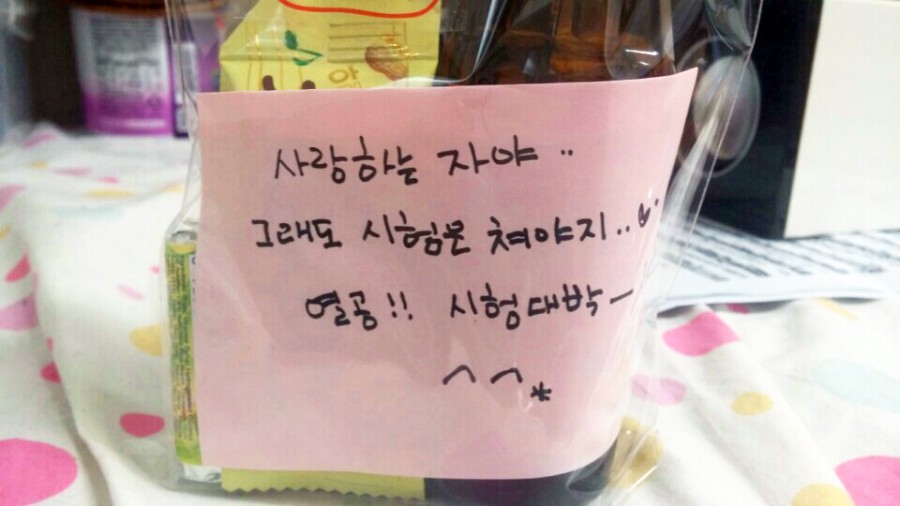 사랑하는 자야 ..
그래도 시험은 쳐야지..
열공!! 시험대박 ─
^^*